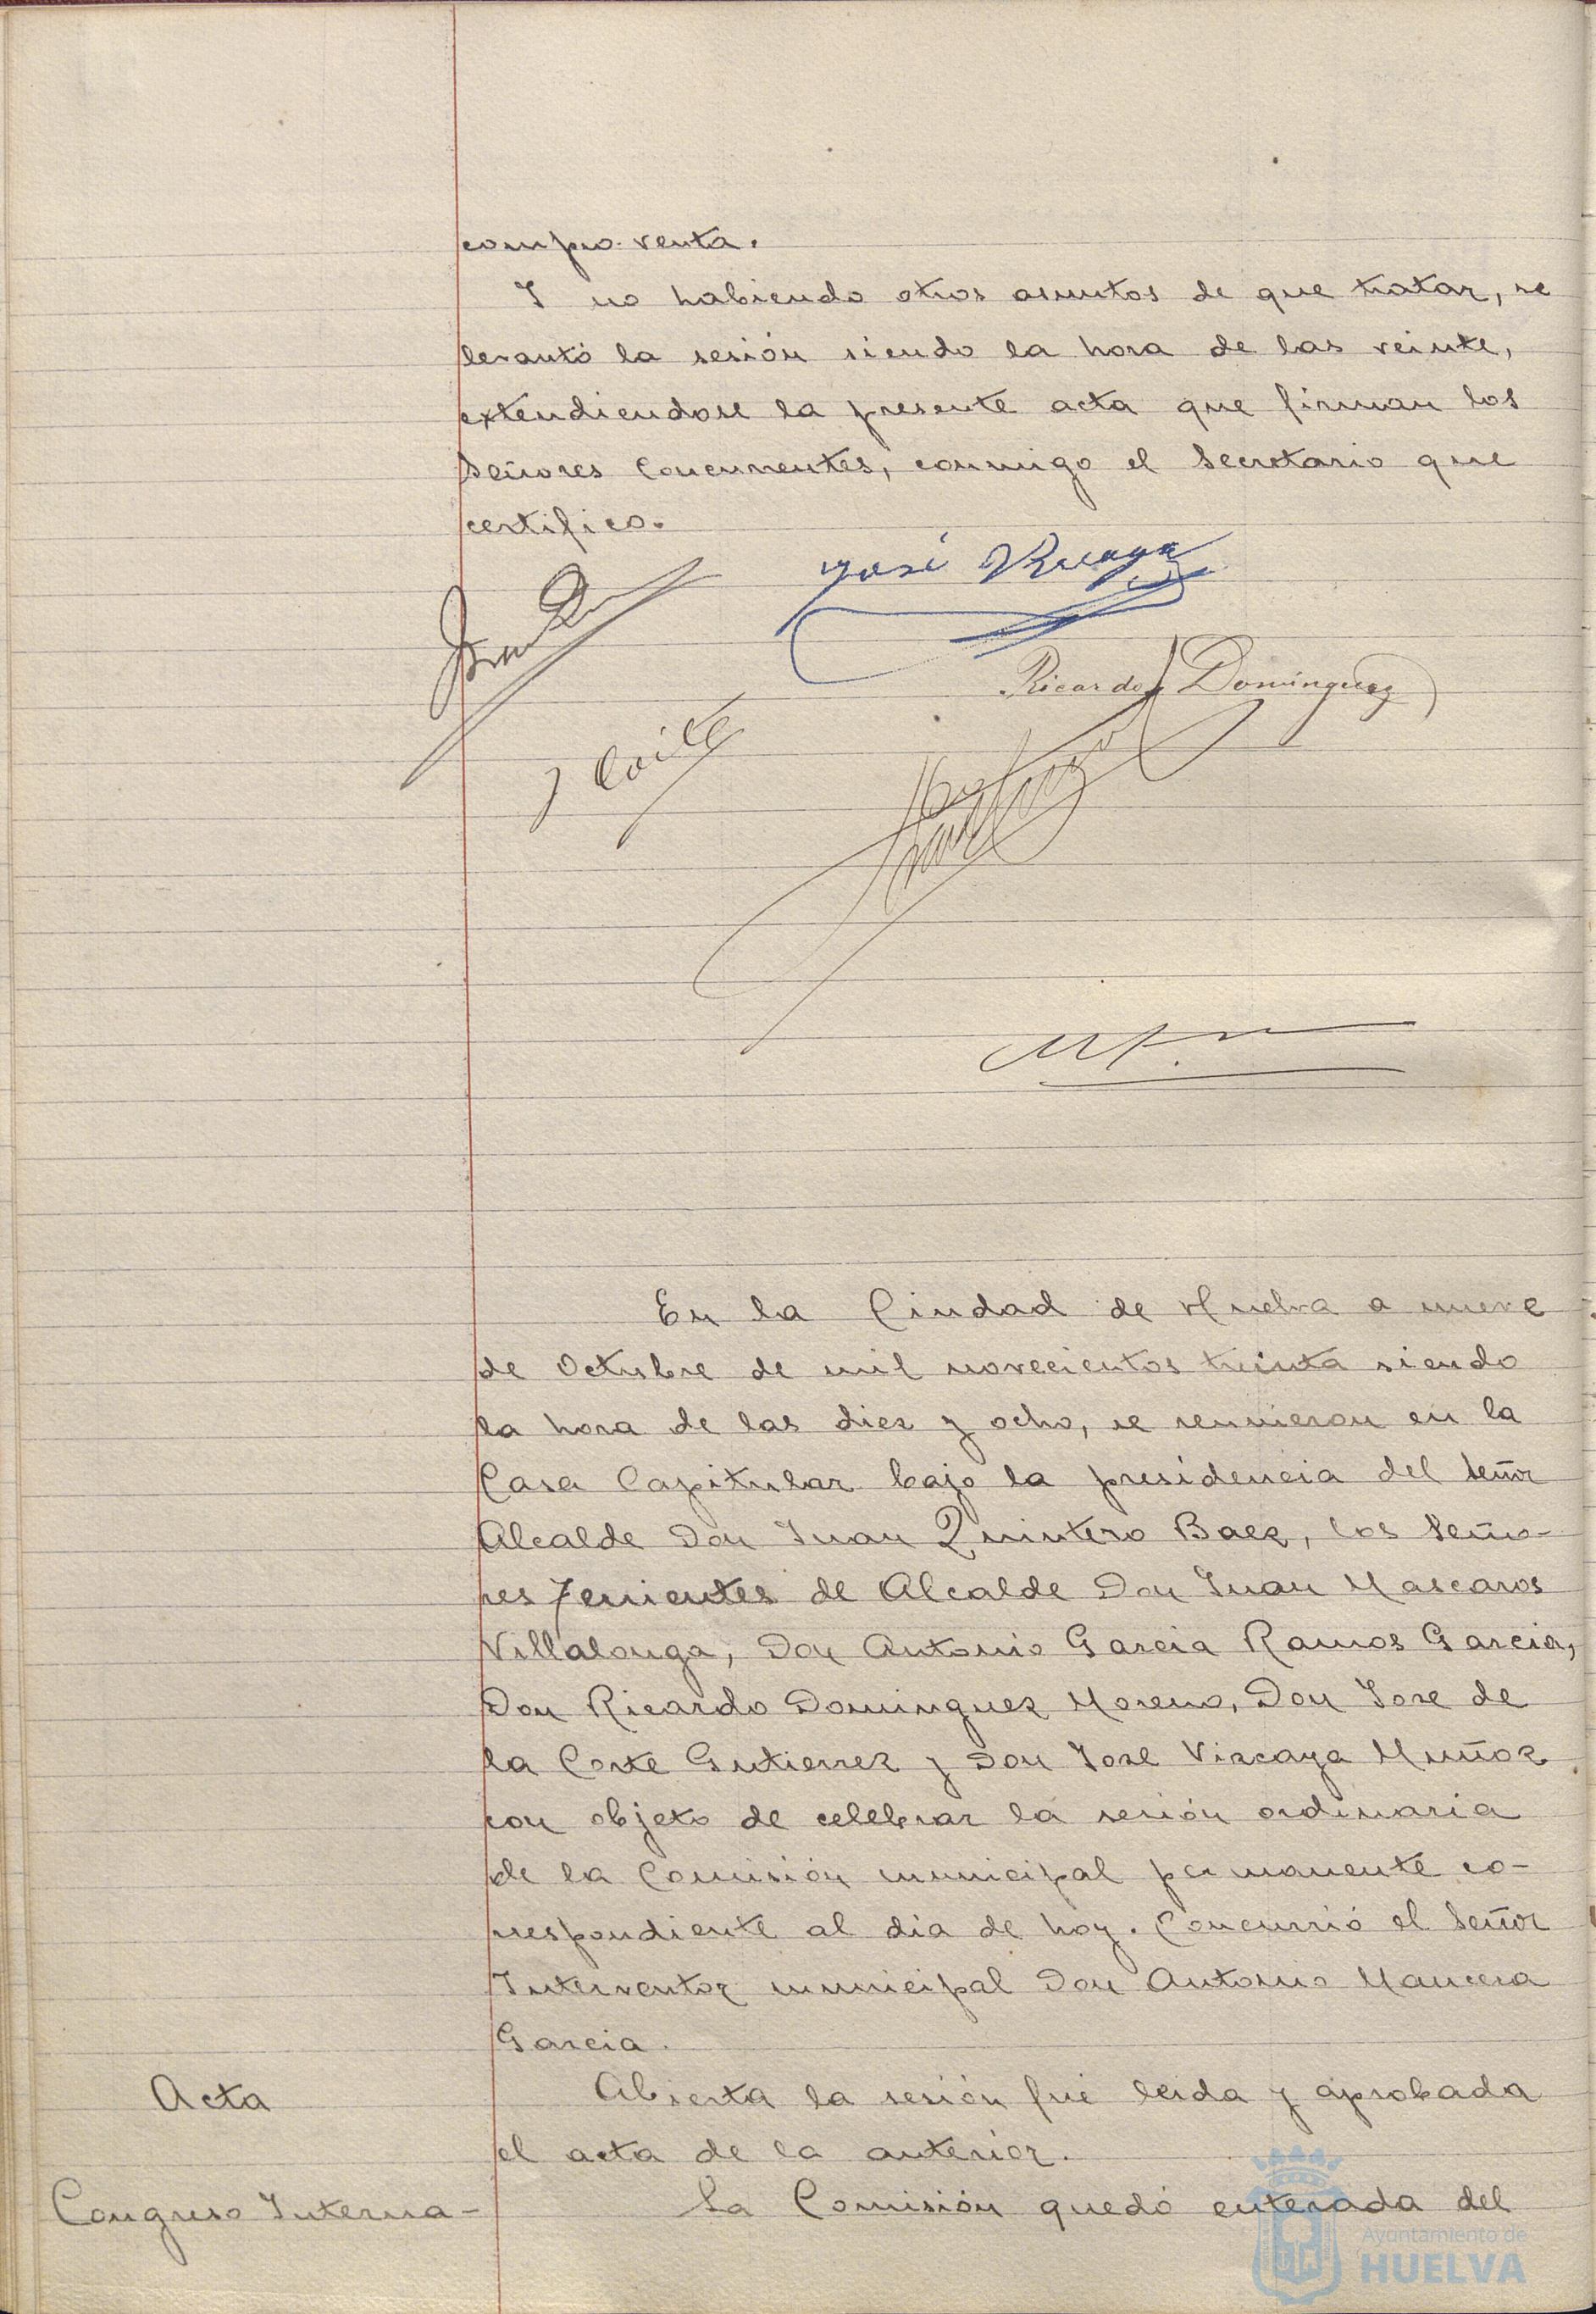 compra-venta.
Y no habiendo otros asuntos de que tratar, se
levantó la sesión siendo la hora de las veinte,
extendiendose la presente acta que firman los
Señores Concurrentes, conmigo el Secretario que
certifico.
José Vizcaya
Ricardo Dominguez
En la Ciudad de Huelva a nueve
de Octubre de mil novecientos treinta siendo
la hora de las diez y ocho, se reunieron en la
Casa Capitular bajo la presidencia del Señor
Alcalde Don Juan Quintero Baez, los Seño-
res Tenientes de Alcalde Don Juan Mascaros
Villalonga, Don Antonio Garcia Ramos Garcia,
Don Ricardo Dominguez Moreno, Don Jose de
la Corte Gutierrez y Don José Vizcaya Muñoz
con objeto de celebrar la sesión ordinaria
de la Comisión municipal permanente co-
rrespondiente al día de hoy. Concurrió el Señor
Interventor municipal Don Antonio Mancera
Garcia.
Acta
Abierta la sesión fué leida y aprobada
el acta de la anterior.
Congreso Interna-
La Comisión quedó enterada del
Ayuntamiento de
HUELVA